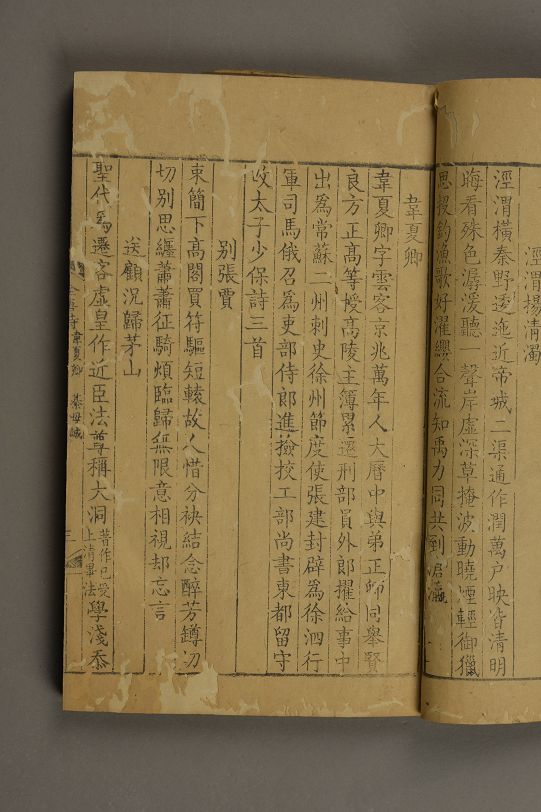 涇渭揚清濁
涇渭橫秦野逶迤近帝城二渠通作潤萬户映皆清明
晦看殊色潺湲聽一聲岸虛深草掩波動曉煙輕御獵
思投釣漁歌好濯纓合流知禹力同共到滄瀛
韋夏卿
韋夏卿字雲客京兆萬年人大曆中與弟正師同舉賢
良方正高等授高陵主簿累遷刑部員外郎擢給事中
出爲常蘇二州刺史徐州節度使張建封辟爲徐泗行
軍司馬俄召爲吏部侍郎進撿校工部尚書東都留守
改太子少保詩三首
別張賈
束簡下高閣買符驅短轅故人惜分袂結念醉芳罇切
切別思纏蕭蕭征騎煩臨歸無限意相視却忘言
送顧況歸茅山
聖代爲遷客虛皇作近臣法尊稱大洞著作已受上清畢法學淺忝
全唐詩 韋夏卿 綦毋誠 三